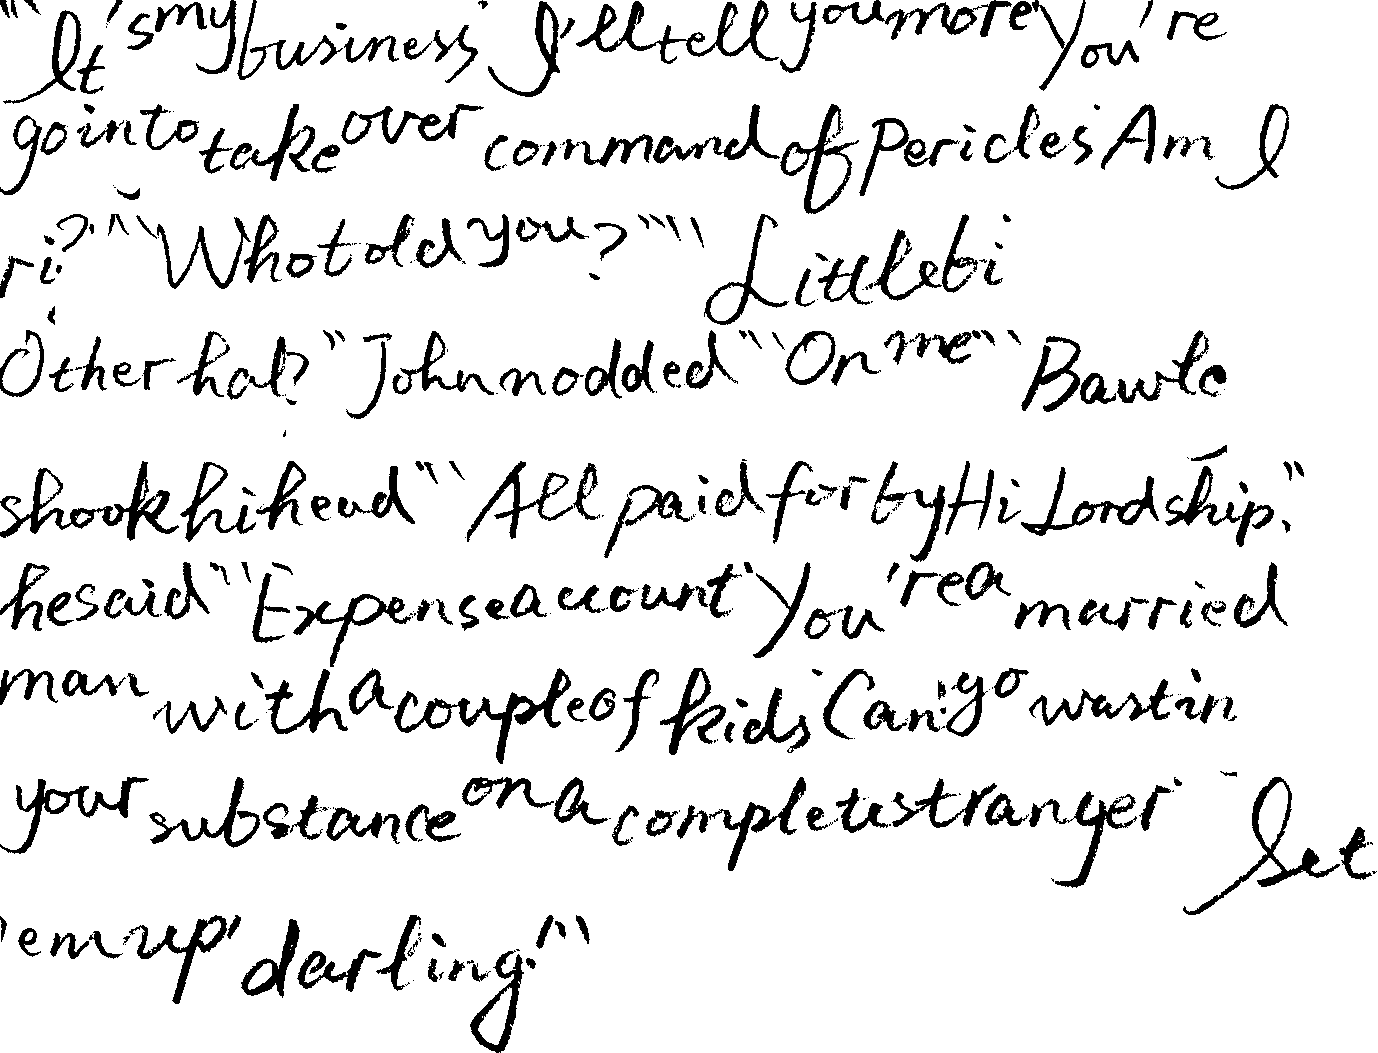 "It's my business I'll tell you more You're
goin to take over command of Pericles Am I
ri? "Who told you?" Little bi
Other hal? " John nodded "On me" Bawle
shook hi head "All paid for by Hi Lordship."
he said "Expense account You're a married
man with a couple of kids Can yo wast in
your substance on a complete stranger Set
'em up' darling!"